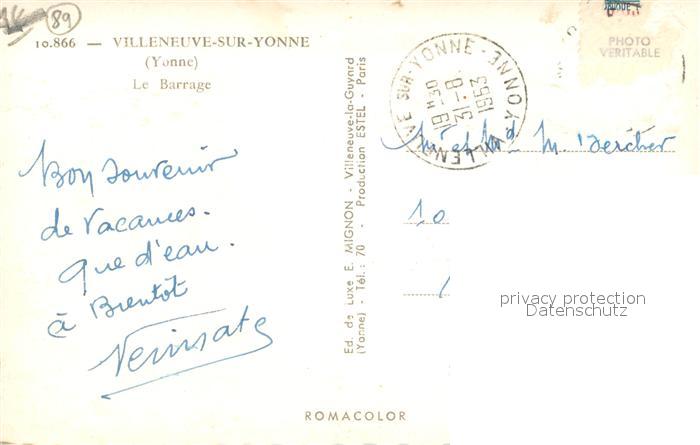 89
10.866 — VILLENEUVE-SUR-YONNE
(Yonne)
Le Barrage
Bon souvenir
de vacances.
que d'eau.
à Bientôt
Ed. de Luxe E. MIGNON - Villeneuve-la-Guyard
(Yonne) - Tél. : 70 - Production ESTEL - Paris
VILLENEUVE SUR-YONNE - YONNE
19H30
31-8
1953
PHOTO
VERITABLE
Mr et Md M.
10
privacy protection
Datenschutz
ROMACOLOR